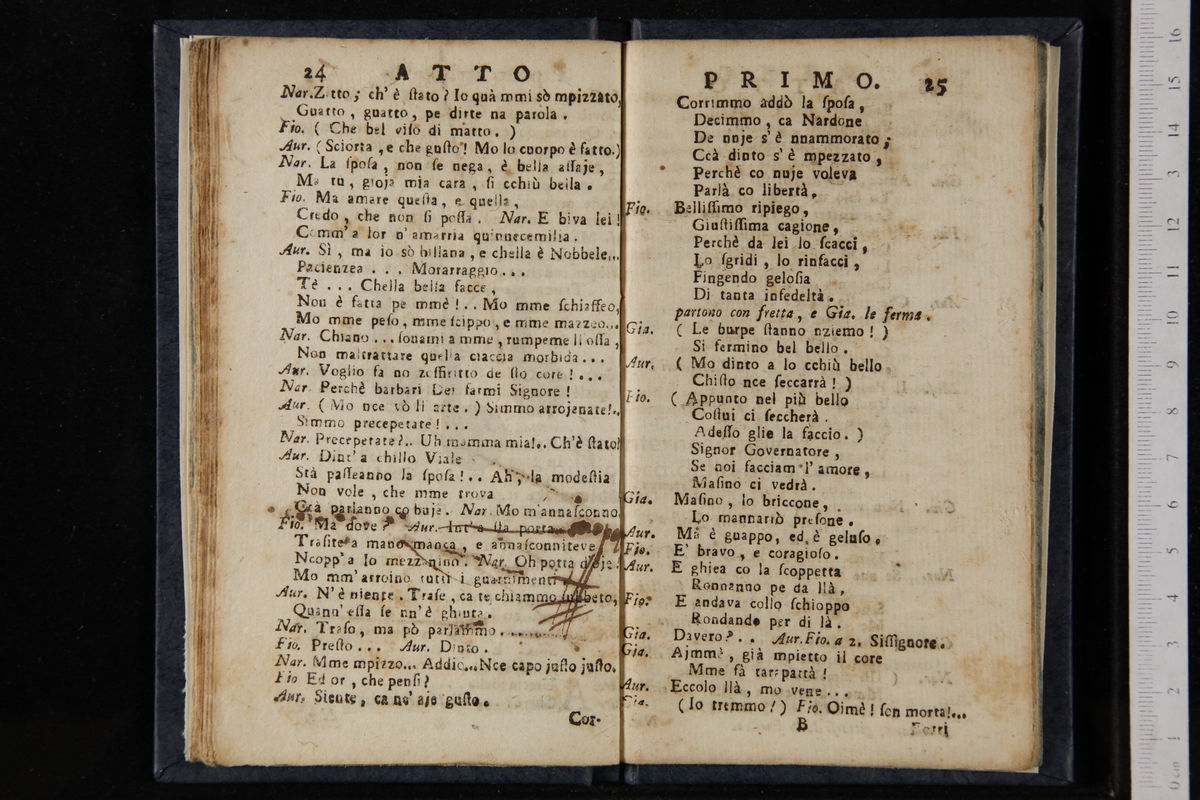 24 ATTO
Nar. Zitto; ch' è ſtato? Io quà mmi sò mpizzato,
Guatto, guatto, pe dirte na parola.
Fio. ( Che bel viſo di matto. )
Aur. ( Sciorta, e che guſto! Mo lo cuorpo è fatto.)
Nar. La ſpoſa, non ſe nega, è bella aſſaje,
Ma tu, gioja mia cara, ſi cchiù bella.
Fio. Ma amare queſta, e quella,
Credo, che non ſi poſſa. Nar. E biva lei!
Comm'a lor n'amarria quinnecemilia.
Aur. Sì, ma io sò billana, e chella è Nobbele...
Pacienzea . . . Morarraggio . . .
Tè . . . Chella bella facce,
Non è fatta pe mmè! . . Mo mme ſchiaffeo,
Mo mme peſo, mme ſcippo, e mme mazzeo...
Nar. Chiano . . . ſonami a mme, rumpeme ll'oſſa,
Non maltrattare quella ciaccia morbida . . .
Aur. Voglio fa no zoffritto de ſto core! . . .
Nar. Perchè barbari Dei farmi Signore!
Aur. ( Mo nce vò ll'arte. ) Simmo arrojenate!..
Simmo precepetate! . . .
Nar. Precepetate?.. Uh mamma mia!.. Ch'è ſtato?
Aur. Dint'a chillo Viale
Stà paſſeanno la ſpoſa! . . Ah, la modeſtia
Non vole, che mme trova
Ccà parlanno co buje. Nar. Mo m'annaſconno.
Fio. Ma dove? Aur. Int'a ſta porta
Traſite a mano manca, e annaſconniteve
Ncopp'a lo mezzanino. Nar. Oh potta d'oje!
Mo mm'arroino tutti i guarnimenti
Aur. N'è niente. Traſe, ca te chiammo ſubbeto,
Quann'eſſa ſe nn'è ghiuta.
Nar. Traſo, ma pò parlammo. . . . .
Fio. Preſto . . . Aur. Dinto.
Nar. Mme mpizzo... Addio...Nce capo juſto juſto.
Fio Ed or, che penſi?
Aur. Siente, ca nn' aje guſto.
Cor-
PRIMO. 25
Corrimmo addò la ſpoſa,
Decimmo, ca Nardone
De nuje s'è nnammorato;
Ccà dinto s'è mpezzato,
Perchè co nuje voleva
Parlà co libertà.
Fio. Belliſſimo ripiego,
Giuſtiſſima cagione,
Perchè da lei lo ſcacci,
Lo ſgridi, lo rinfacci,
Fingendo geloſia
Di tanta infedeltà.
partono con fretta, e Gia. le ferma.
Gia. ( Le burpe ſtanno nziemo! )
Si fermino bel bello.
Aur. ( Mo dinto a lo cchiù bello
Chiſto nce ſeccarrà! )
Fio. ( Appunto nel più bello
Coſtui ci ſeccherà.
Adeſſo glie la faccio. )
Signor Governatore,
Se noi facciam l'amore,
Maſino ci vedrà.
Gia. Maſino, lo briccone,
Lo mannarìò preſone.
Aur. Ma è guappo, ed è geluſo.
Fio. E' bravo, e coragioſo.
Aur. E ghiea co la ſcoppetta
Ronnanno pe da llà,
Fio. E andava collo ſchioppo
Rondando per di là.
Gia. Davero? . . Aur. Fio. a 2. Siſſignore.
Gia. Ajmmè, già mpietto il core
Mme fà tarappatà!
Aur. Eccolo llà, mo vene . . .
Gia. ( Io tremmo! ) Fio. Oimè! ſon morta!...
B Ferri